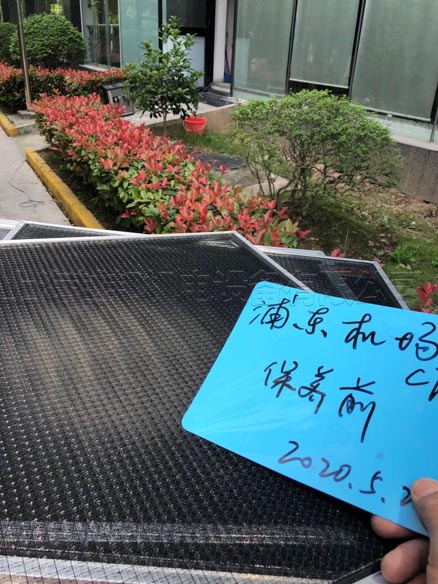 浦东机场
保养前
2020.5.